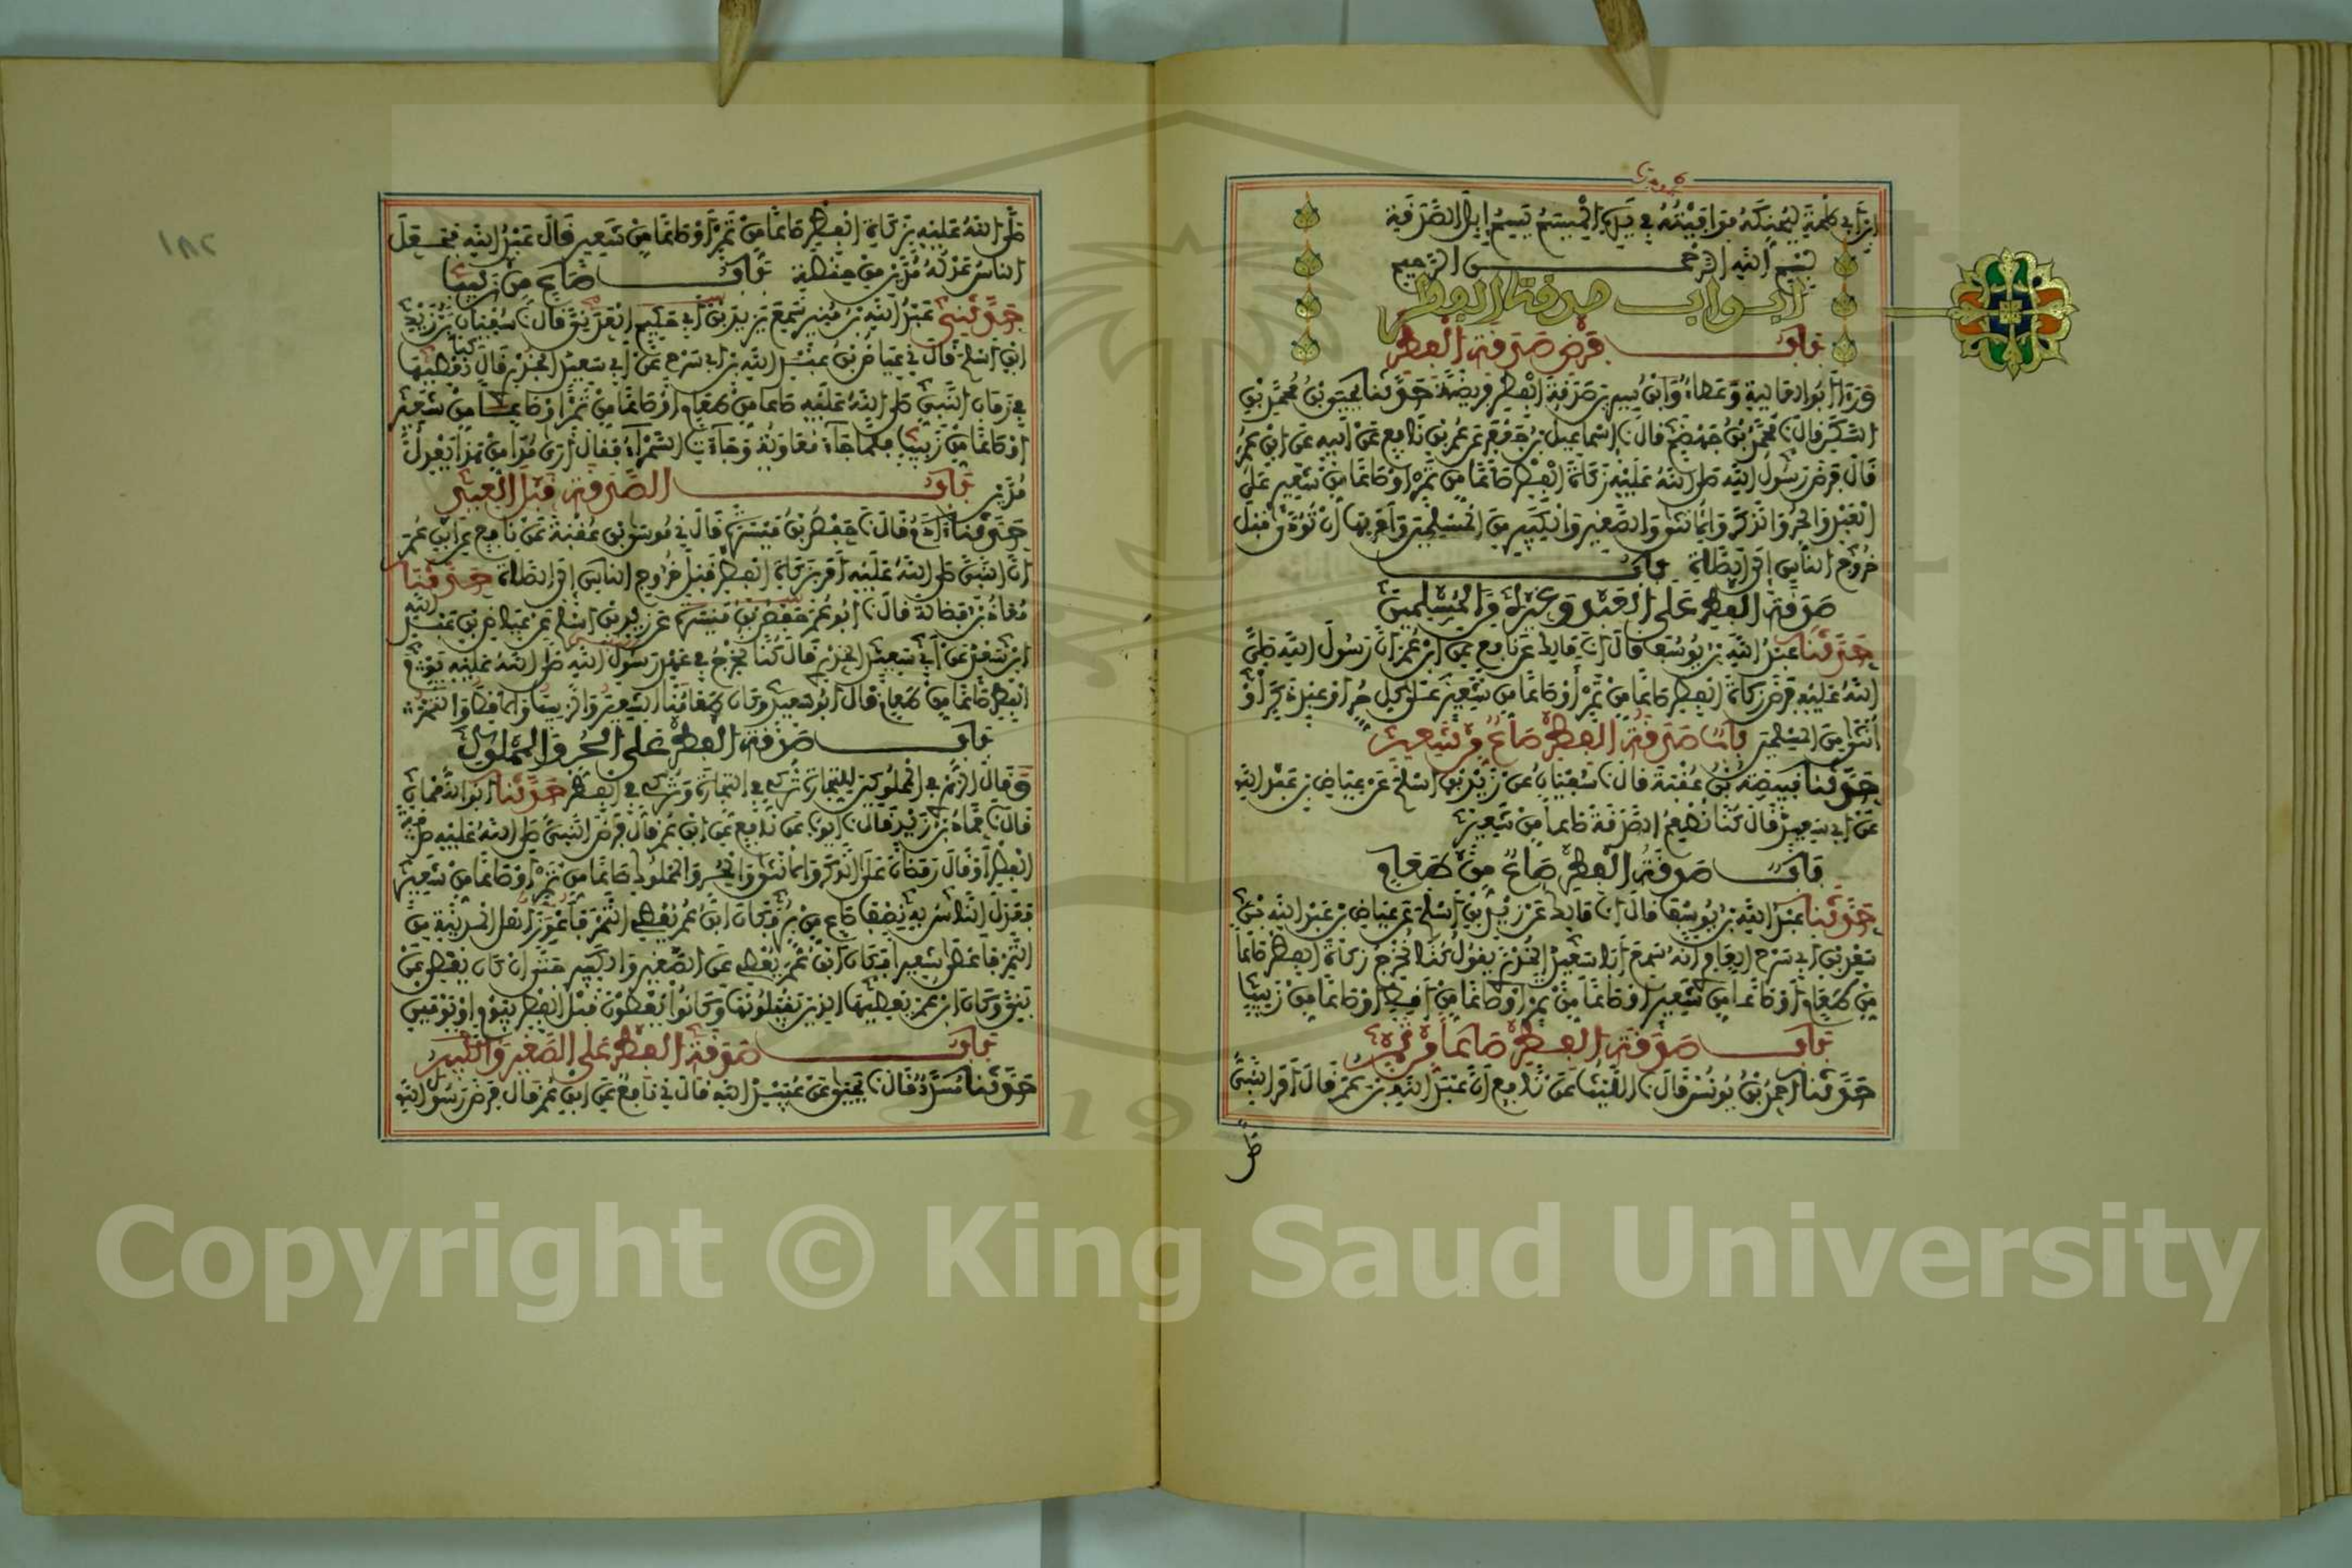 ابن أبي طلحة ليحنكه فوافيته في يده الميسم يسم إبل الصدقة
بسم الله الرحمن الرحيم
أبواب صدقة الفطر
باب فرض صدقة الفطر
ورأى أبو العالية وعطاء وابن سيرين صدقة الفطر فريضة حدثنا يحيى بن محمد بن
السكن قال نا محمد بن جهضم قال نا إسماعيل بن جعفر عن عمر بن نافع عن أبيه عن ابن عمر
قال فرض رسول الله صلى الله عليه زكاة الفطر صاعا من تمر أو صاعا من شعير على
العبد والحر والذكر والأنثى والصغير والكبير من المسلمين وأمر بها أن تؤدى قبل
خروج الناس إلى الصلاة باب
صدقة الفطر على العبد وغيره من المسلمين
حدثنا عبد الله بن يوسف قال أنا مالك عن نافع عن ابن عمر أن رسول الله صلى
الله عليه فرض زكاة الفطر صاعا من تمر أو صاعا من شعير على كل حر أو عبد ذكر أو
أنثى من المسلمين باب صدقة الفطر صاع من شعير
حدثنا قبيصة بن عقبة قال نا سفيان عن زيد بن أسلم عن عياض بن عبد الله
عن أبي سعيد قال كنا نطعم الصدقة صاعا من شعير
باب صدقة الفطر صاع من طعام
حدثنا عبد الله بن يوسف قال أنا مالك عن زيد بن أسلم عن عياض بن عبد الله بن
سعد بن أبي سرح العامري أنه سمع أبا سعيد الخدري يقول كنا نخرج زكاة الفطر صاعا
من طعام أو صاعا من شعير أو صاعا من تمر أو صاعا من أقط أو صاعا من زبيب
باب صدقة الفطر صاعا من تمر
حدثنا أحمد بن يونس قال نا الليث عن نافع أن عبد الله بن عمر قال أمر النبي
صلى
صلى الله عليه بزكاة الفطر صاعا من تمر أو صاعا من شعير قال عبد الله فجعل
الناس عدله مدين من حنطة باب صاع من زبيب
حدثني عبد الله بن منير سمع يزيد بن أبي حكيم العدني قال نا سفيان عن زيد
ابن أسلم قال ني عياض بن عبد الله بن أبي سرح عن أبي سعيد الخدري قال كنا نعطيها
في زمان النبي صلى الله عليه صاعا من طعام أو صاعا من تمر أو صاعا من شعير
أو صاعا من زبيب فلما جاء معاوية وجاءت السمراء فقال أرى مدا من هذا يعدل
مدين باب الصدقة قبل العيد
حدثنا آدم قال نا حفص بن ميسرة قال ني موسى بن عقبة عن نافع عن ابن عمر
أن النبي صلى الله عليه أمر بزكاة الفطر قبل خروج الناس إلى الصلاة حدثنا
معاذ بن فضالة قال نا أبو عمر حفص بن ميسرة عن زيد بن أسلم عن عياض بن عبد الله
ابن سعد عن أبي سعيد الخدري قال كنا نخرج في عهد رسول الله صلى الله عليه يوم
الفطر صاعا من طعام قال أبو سعيد وكان طعامنا الشعير والزبيب والأقط والتمر
باب صدقة الفطر على الحر والمملوك
وقال الزهري في المملوكين للتجارة يزكى في التجارة ويزكى في الفطر حدثنا أبو النعمان
قال نا حماد بن زيد قال نا أيوب عن نافع عن ابن عمر قال فرض النبي صلى الله عليه صدقة
الفطر أو قال رمضان على الذكر والأنثى والحر والمملوك صاعا من تمر أو صاعا من شعير
فعدل الناس به نصف صاع من بر فكان ابن عمر يعطي التمر فأعوز أهل المدينة من
التمر فأعطى شعيرا فكان ابن عمر يعطي عن الصغير والكبير حتى إن كان يعطي عن
بني وكان ابن عمر يعطيها الذين يقبلونها وكانوا يعطون قبل الفطر بيوم أو يومين
باب صدقة الفطر على الصغير والكبير
حدثنا مسدد قال نا يحيى عن عبيد الله قال ني نافع عن ابن عمر قال فرض رسول الله
Copyright © King Saud University